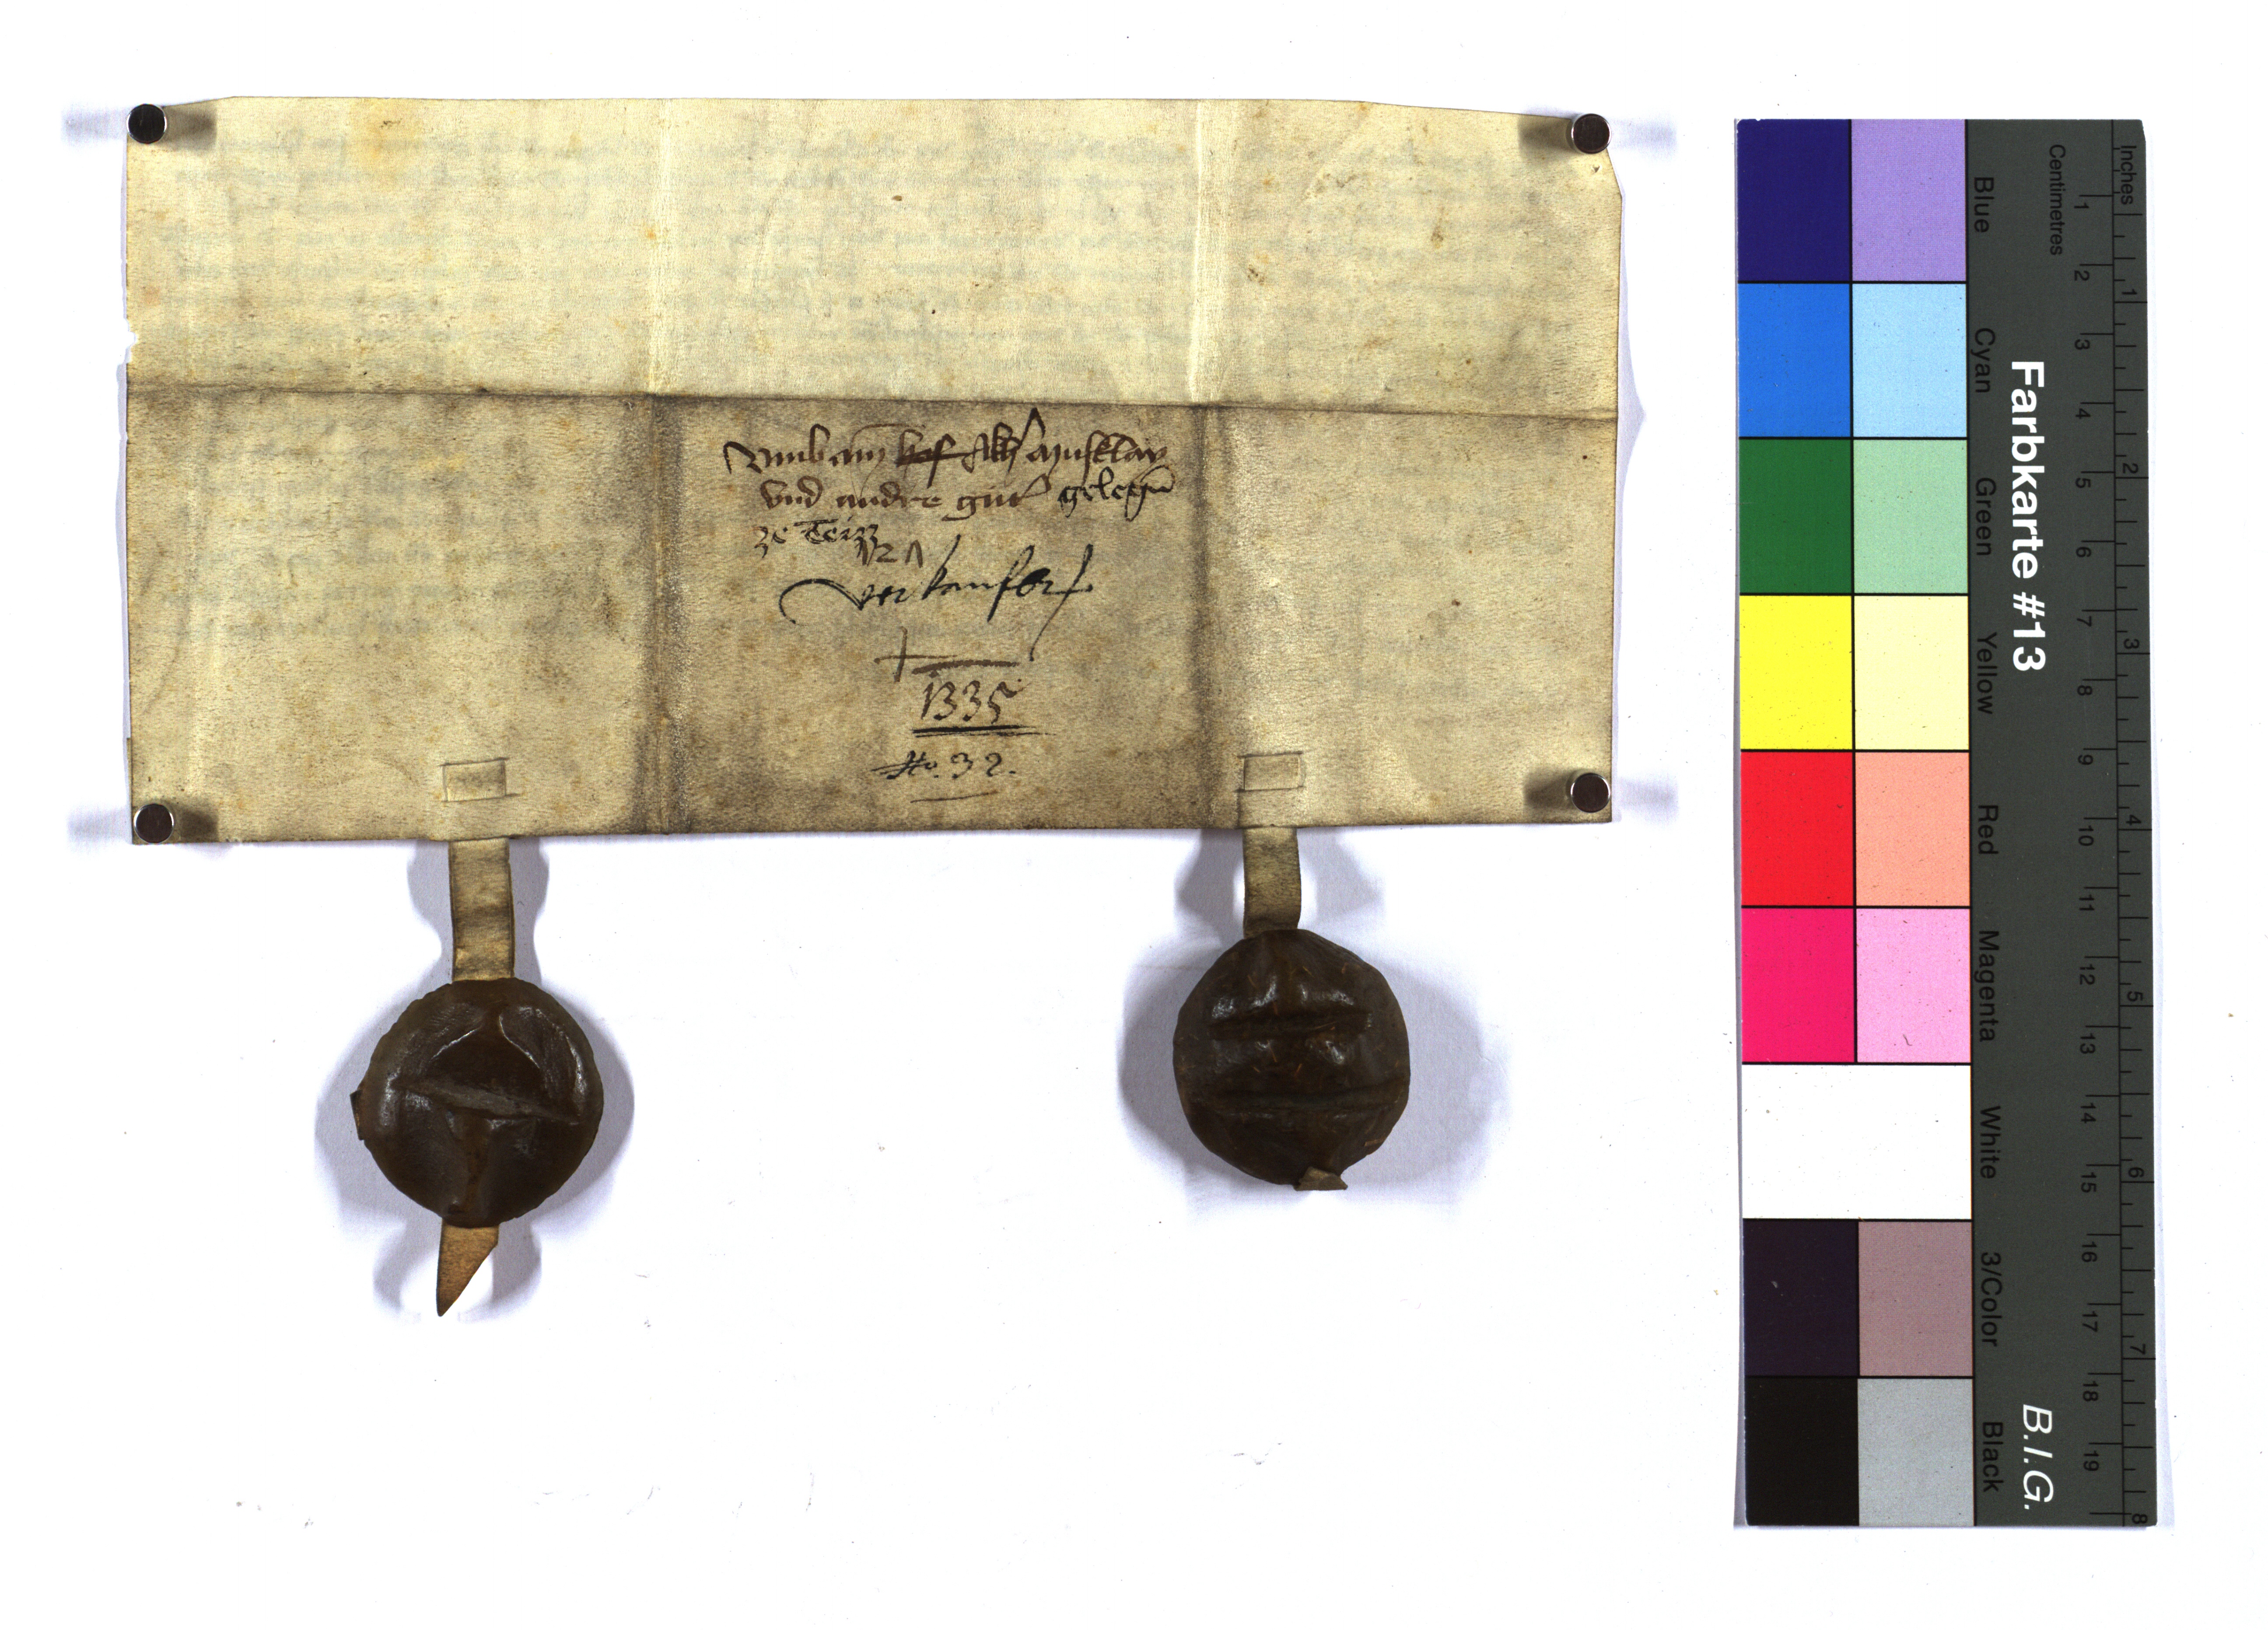 Umb ain hof
und andre gut gelegn
ze Teizz
verkaufer
1335
No. 32.
Inches
Centimetres
1 2 3 4 5 6 7 8 9 10 11 12 13 14 15 16 17 18 19
1 2 3 4 5 6 7 8
Farbkarte #13
B.I.G.
Blue Cyan Green Yellow Red Magenta White 3/Color Black